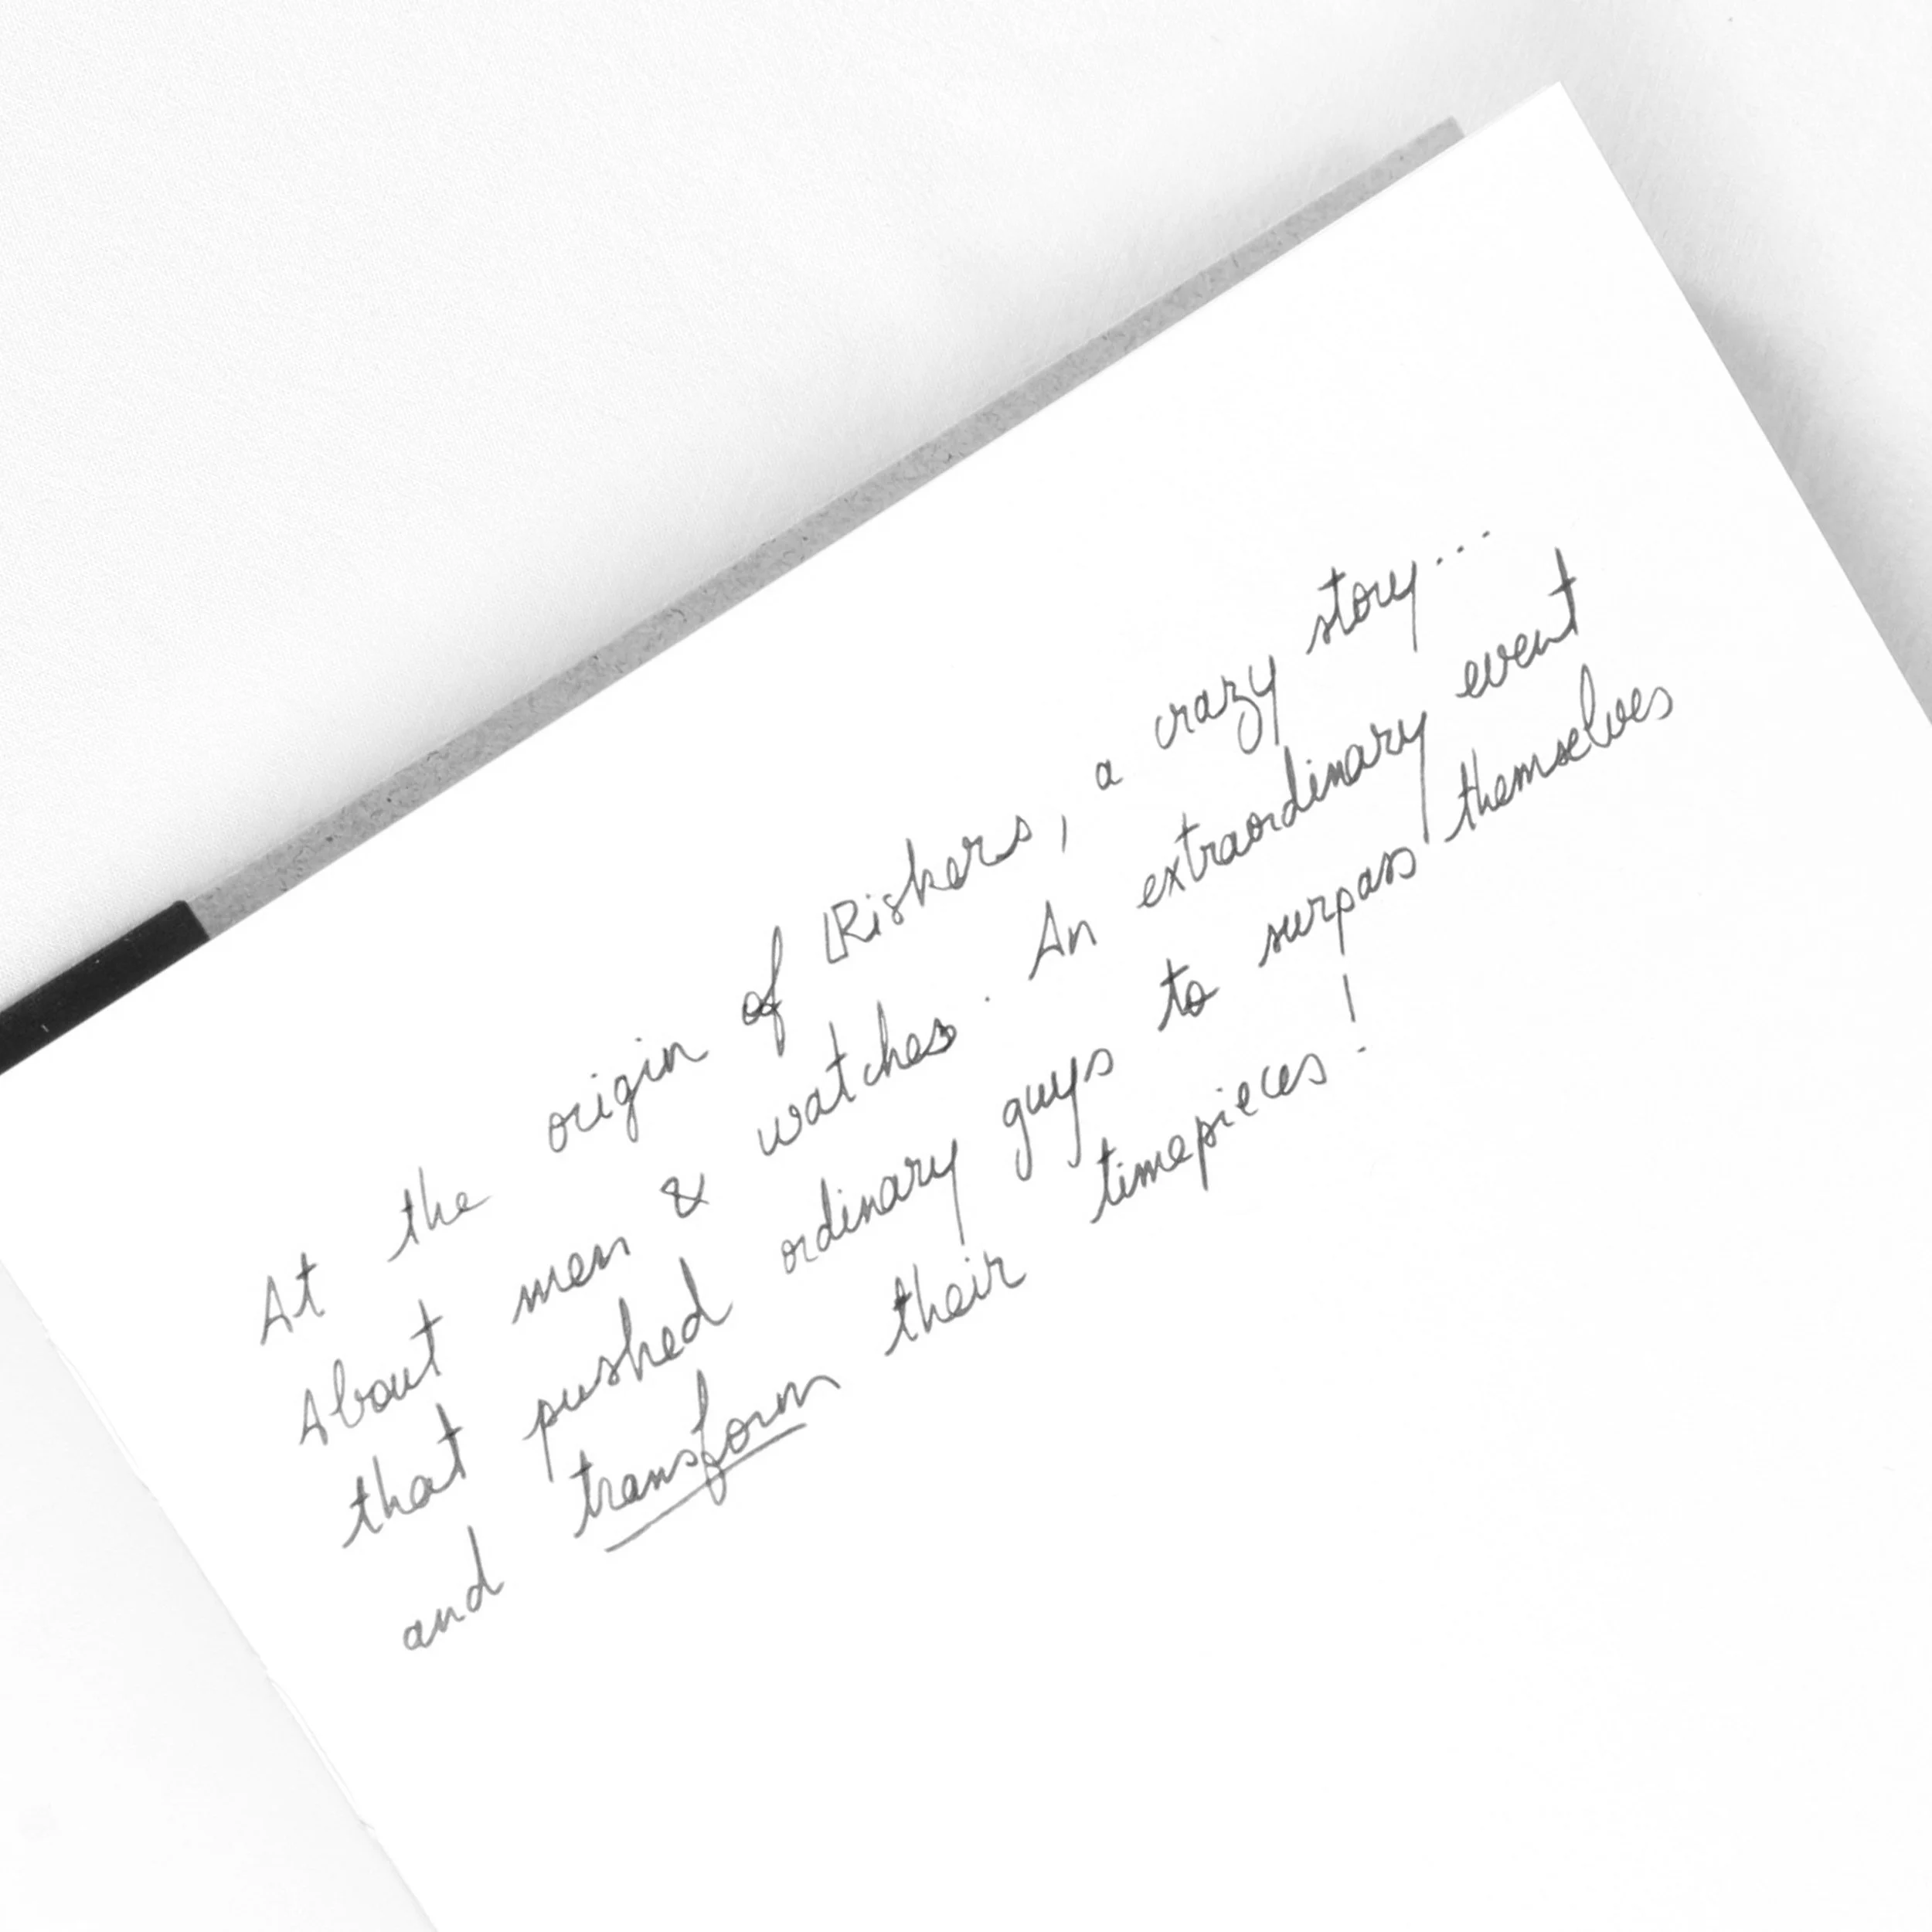 At the origin of Riskers, a crazy story...
About men & watches. An extraordinary event
that pushed ordinary guys to surpass themselves
and transform their timepieces!